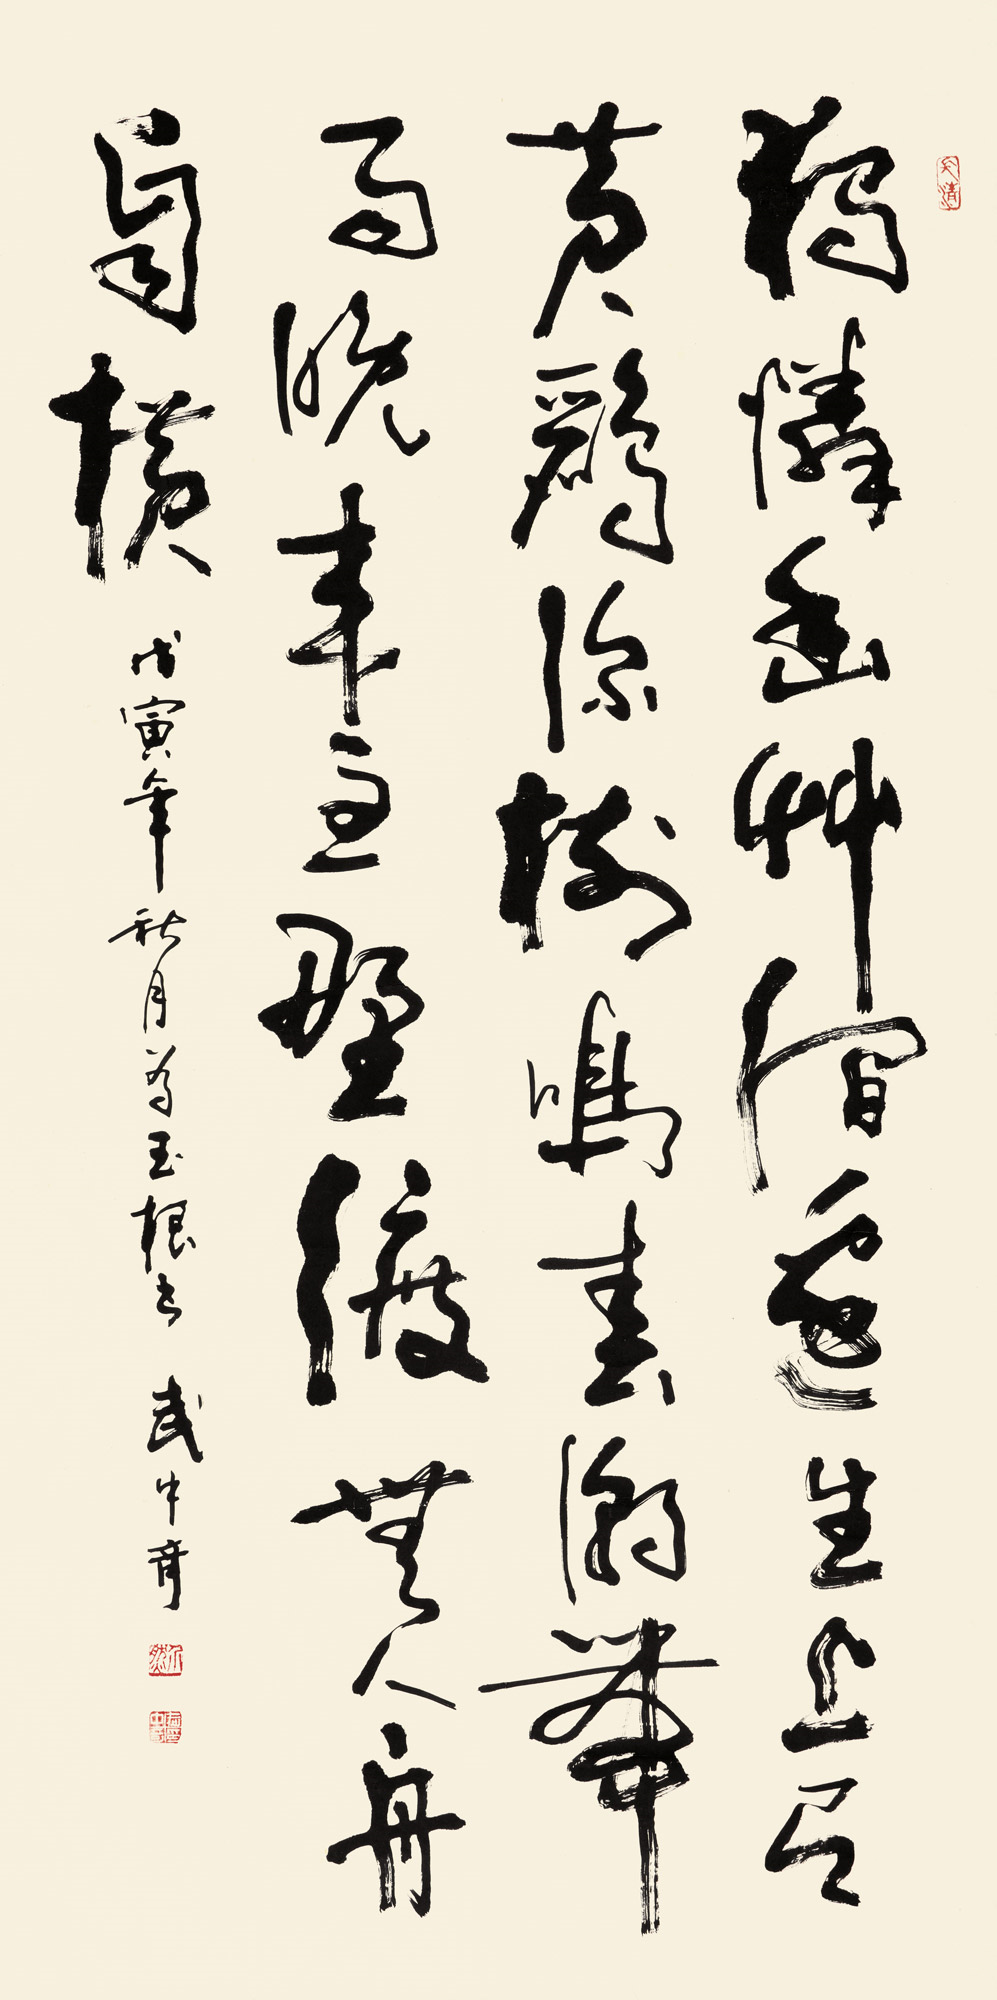 獨憐幽艸澗邊生上有
黃鸝深樹鳴春潮帶
雨晚來急野渡無人舟
自橫 戊寅年秋月為玉根書 武中奇